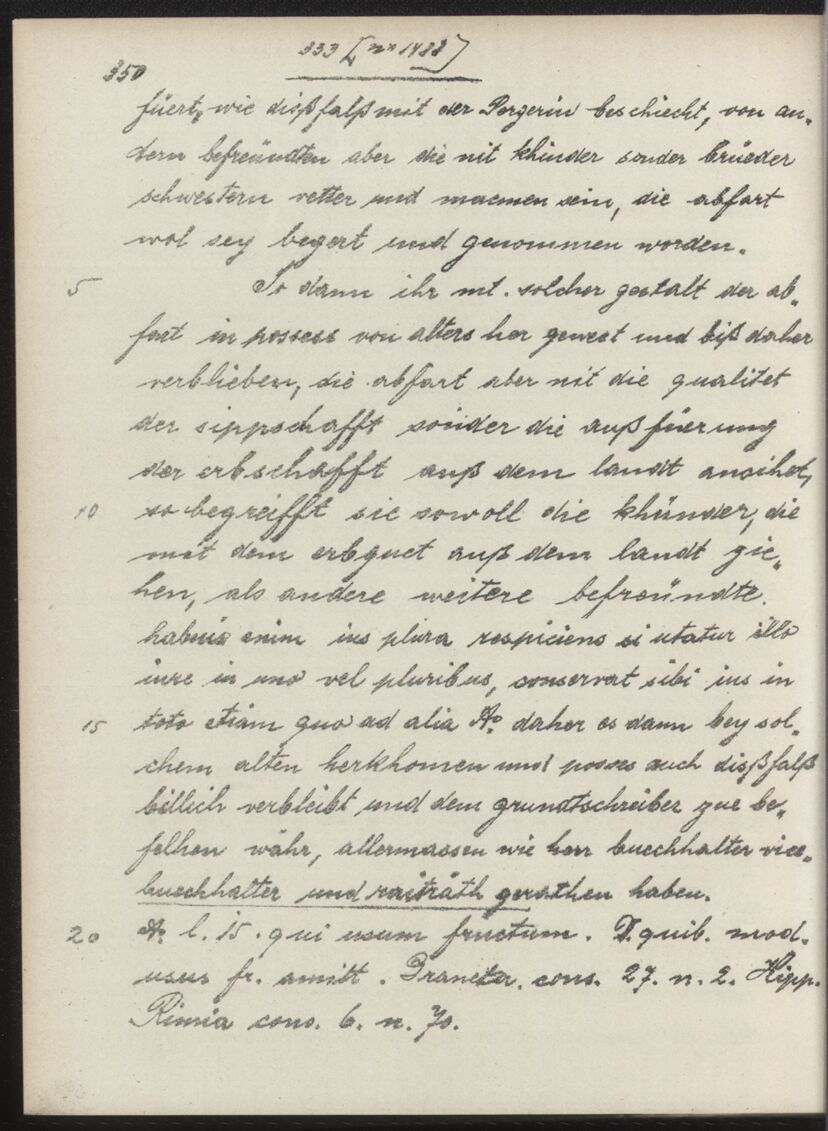 333 [no 1488]
350
füert, wie dißfalß mit der Pergerin beschiecht, von an„
dern befreündten aber die nit khinder sonder brüeder
schwestern vetter und maemen sein, die abfart
wol sey begert und genommen worden.
5 So dann ihr mt. solcher gestalt der ab„
fart in possess von alters her gewest und biß daher
verblieben, die abfart aber nit die qualitet
der sippschafft sonder die außfüerung
der erbschafft auß dem landt ansihet,
10 so begreifft sie sowoll die khünder, die
mit dem erbguet auß dem landt zie„
hen, als andere weitere befreündte.
habens enim ius plura respiciens si utatur illo
iure in uno vel pluribus, conservat sibi ius in
15 toto etiam quo ad alia A°. daher es dann bey sol„
chem alten herkhomen und posses auch dißfalß
billich verbleibt und dem grundtschreiber zue be„
felhen währ, allermassen wie herr buechhalter vice„
buechhalter und raiträth gerathen haben.
20 A°. l. 15. qui usum fructum. D. quib. mod.
usus fr. amitt. cons. 27. n. 2. Hipp.
Rimia cons. 6. n. 70.